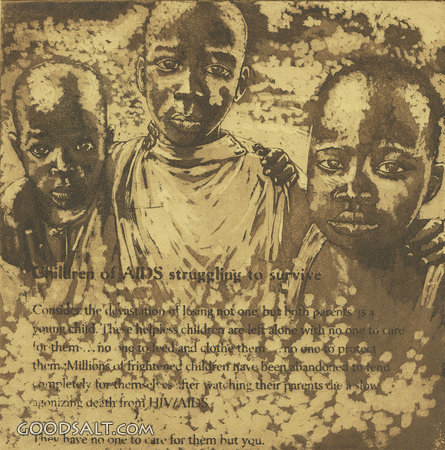 Children of AIDS struggling to survive
Consider the devastation of losing not one, but both parents as a
young child. These helpless children are left alone with no one to care
for them . . . no one to feed and clothe them . . . no one to protect
them. Millions of frightened children have been abandoned to fend
completely for themselves after watching their parents die a slow,
agonizing death from HIV/AIDS.
They have no one to care for them but you.
GOODSALT.COM